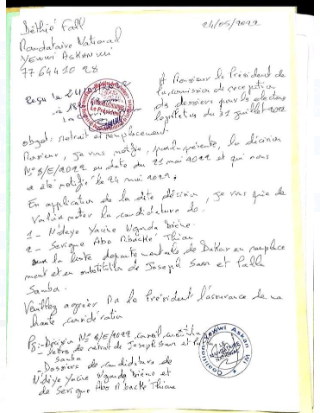 Déthié Fall
Mandataire National
Yewwi Askan wi
77 644 10 28
24/05/2022
A Monsieur le Président de
la commission de réception
des dossiers pour les élections
législatives du 31 juillet 2022
Reçu le 24/05/2022
objet: retrait et remplacement
Monsieur, je vous notifie, par la présente, la décision
N° 8/E/2022 en date du 21 mai 2022 et qui nous
a été notifié le 24 mai 2022.
En application de la dite décision, je vous prie de
la candidature de
1 - Ndèye Yacine
2 - Serigne Abo Mbacké Thiam
sur la liste départementale de
ment et en substitution de Joseph Sarr et Fallou
Samba.
Veuillez agréer M. le Président l'assurance de ma
haute considération
PS: - Décision N° 8/E/2022 conseil
- lettre de retrait de Joseph Sarr et
Samba
- Dossiers de candidature de
Ndèye Yacine
et
de Serigne Abo Mbacké Thiam